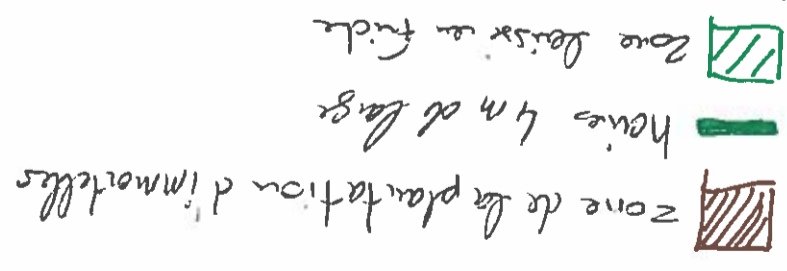 zone de la plantation d'immortelles
haies 4 m de large
zone laissé en friche